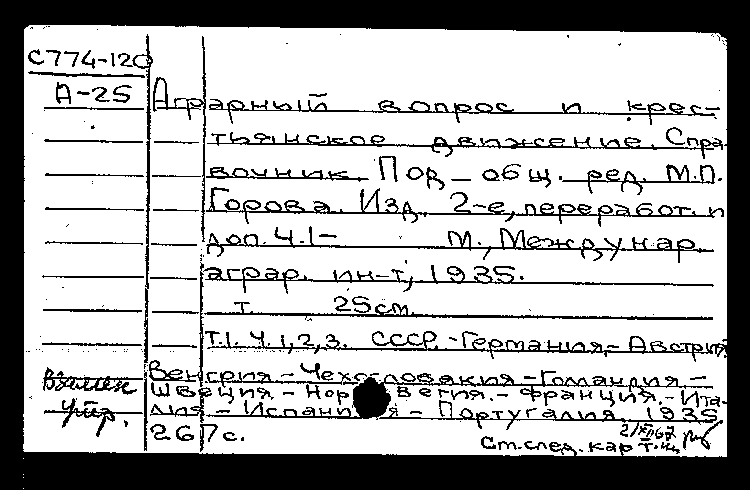 С774-120
А-25
Аграрный вопрос и крес-
тьянское движение. Спра-
вочник. Под общ. ред. М.П.
Горова. Изд. 2-е, переработ. и
доп. Ч.1- М., Междунар.
аграр. ин-т, 1935.
т. 25см.
Т.1. Ч.1,2,3. СССР.-Германия,-Австрия
Венгрия.-Чехословакия-Голландия.-
Швеция.-Норвегия.-Франция.-Ита-
лия.-Испания-Португалия. 1935
267с.
Взамен
утр.
См.след.кар